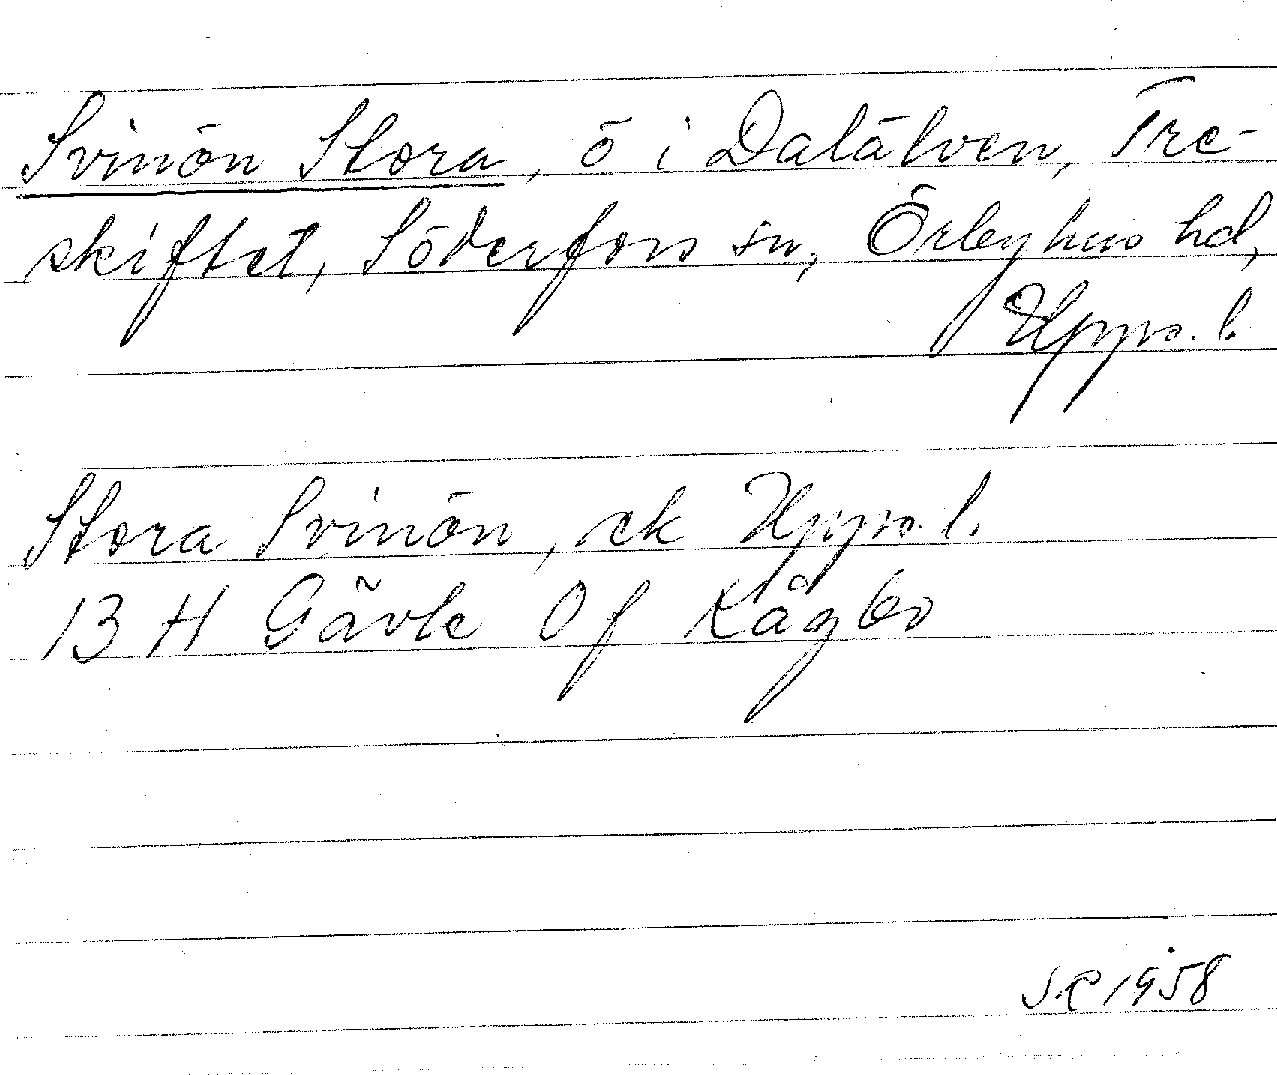 Svinön Stora, ö i Dalälven, Tre-
skiftet, Söderfors sn, Örbyhus hd,
Upps. l.
Stora Svinön, ek Upps. l.
13 H Gävle 0f Kågbo
SR 1958